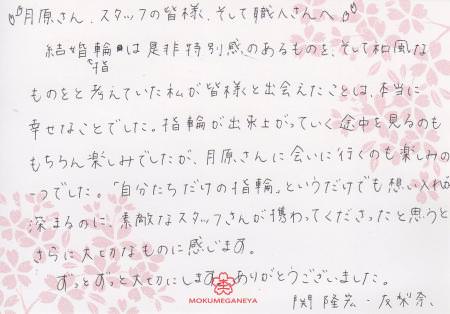 月原さん、スタッフの皆様、そして職人さんへ
結婚指輪は是非特別感のあるものを、そして和風な
ものをと考えていた私が皆様と出会えたことは、本当に
幸せなことでした。指輪が出来上がっていく途中を見るのも
もちろん楽しみでしたが、月原さんに会いに行くのも楽しみの
一つでした。「自分たちだけの指輪」というだけでも想い入れが
深まるのに、素敵なスタッフさんが携わってくださったと思うと
さらに大切なものに感じます。
ずっとずっと大切にします。ありがとうございました。
MOKUMEGANEYA
関 隆宏・友梨奈